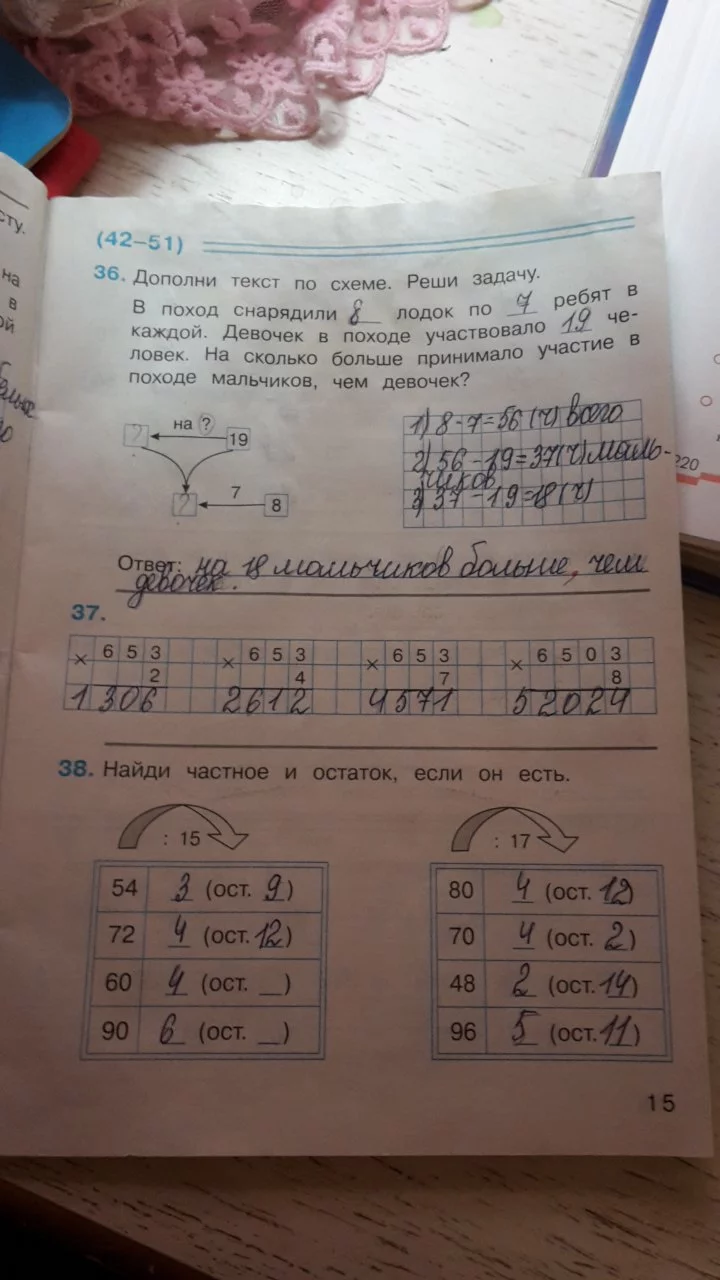 сту.
на
в
ой
(42–51)
36. Дополни текст по схеме. Реши задачу.
В поход снарядили 8 лодок по 7 ребят в
каждой. Девочек в походе участвовало 19 че-
ловек. На сколько больше принимало участие в
походе мальчиков, чем девочек?
на ?
? 19
7
? 8
1) 8·7=56 (ч) всего
2) 56-19=37(ч) маль-
чиков
3) 37-19=18(ч)
Ответ: на 18 мальчиков больше, чем
девочек.
37.
× 6 5 3 × 6 5 3 × 6 5 3 × 6 5 0 3
2 4 7 8
1306 2612 4571 52024
38. Найди частное и остаток, если он есть.
: 15 : 17
54 3 (ост. 9) 80 4 (ост. 12)
72 4 (ост. 12) 70 4 (ост. 2)
60 4 (ост. _) 48 2 (ост. 14)
90 6 (ост. _) 96 5 (ост. 11)
15
220